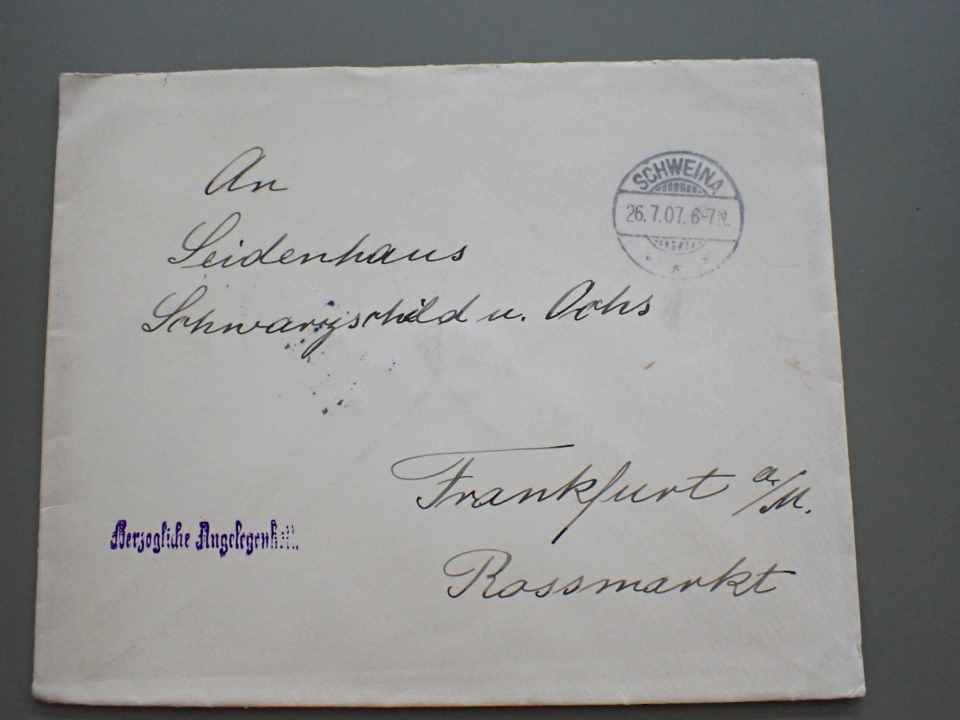 An
Seidenhaus
Schwarzschild u. Ochs
Frankfurt a/M.
Rossmarkt
SCHWEINA
26.7.07. 6-7N.
Herzogliche